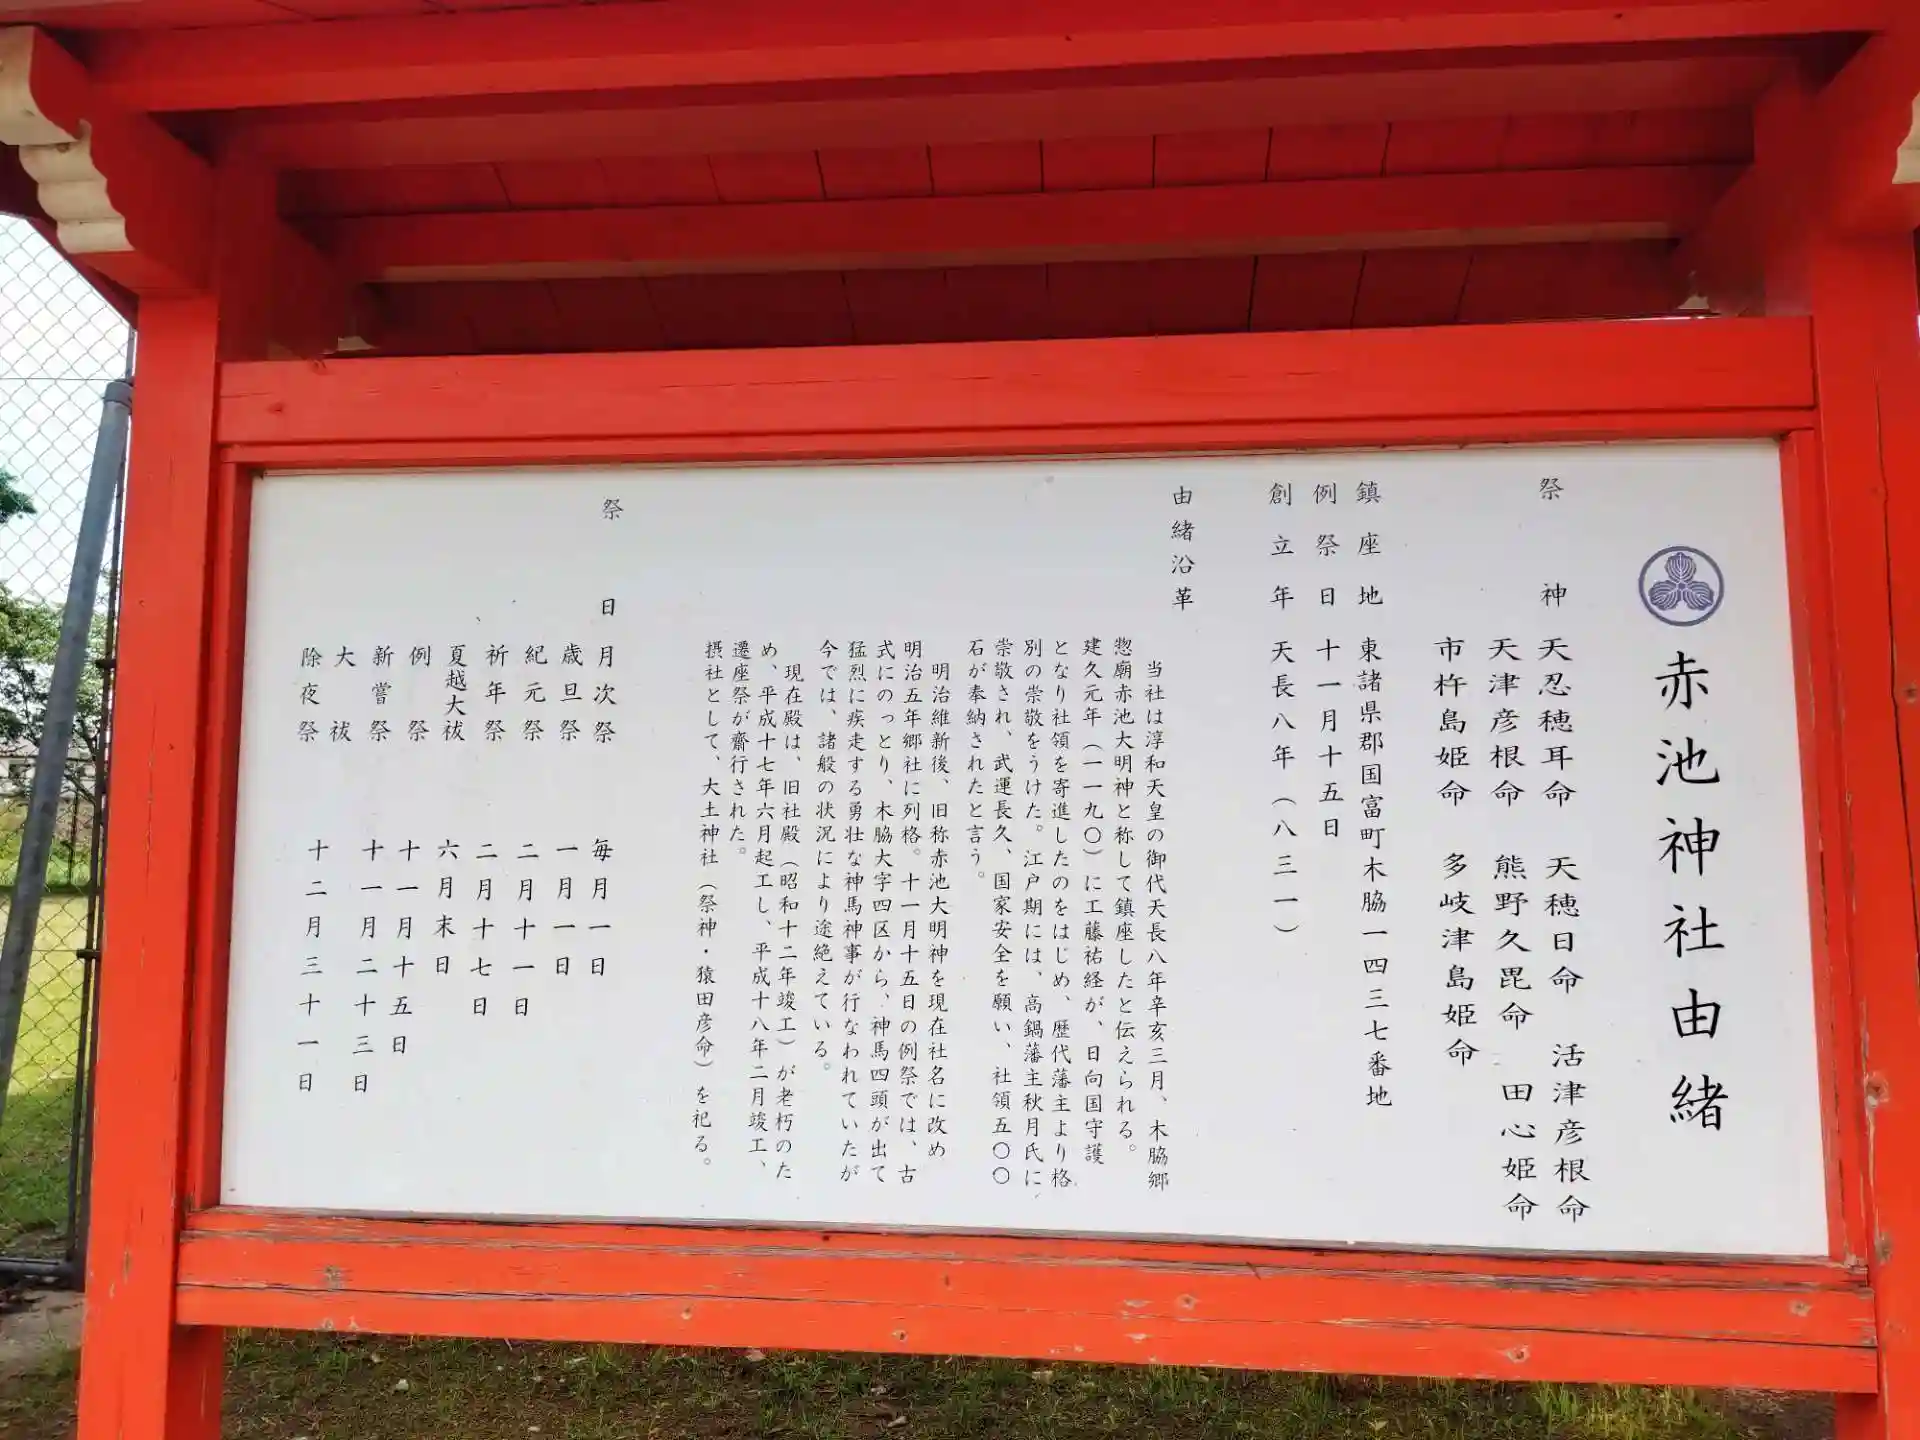 赤池神社由緒
祭神 天忍穂耳命 天穂日命 活津彦根命
天津彦根命 熊野久毘命 田心姫命
市杵島姫命 多岐津島姫命
鎮座地 東諸県郡国富町木脇一四三七番地
例祭日 十一月十五日
創立年 天長八年(八三一)
由緒沿革
当社は淳和天皇の御代天長八年辛亥三月、木脇郷
惣廟赤池大明神と称して鎮座したと伝えられる。
建久元年(一一九〇)に工藤祐経が、日向国守護
となり社領を寄進したのをはじめ、歴代藩主より格
別の崇敬をうけた。江戸期には、高鍋藩主秋月氏に
崇敬され、武運長久、国家安全を願い、社領五〇〇
石が奉納されたと言う。
明治維新後、旧称赤池大明神を現在社名に改め
明治五年郷社に列格。十一月十五日の例祭では、古
式にのっとり、木脇大字四区から、神馬四頭が出て
猛烈に疾走する勇壮な神馬神事が行なわれていたが
今では、諸般の状況により途絶えている。
現在殿は、旧社殿(昭和十二年竣工)が老朽のた
め、平成十七年六月起工し、平成十八年二月竣工、
遷座祭が齋行された。
摂社として、大土神社(祭神・猿田彦命)を祀る。
祭日
月次祭 毎月一日
歳旦祭 一月一日
紀元祭 二月十一日
祈年祭 二月十七日
夏越大祓 六月末日
例祭 十一月十五日
新嘗祭 十一月二十三日
大祓
除夜祭 十二月三十一日